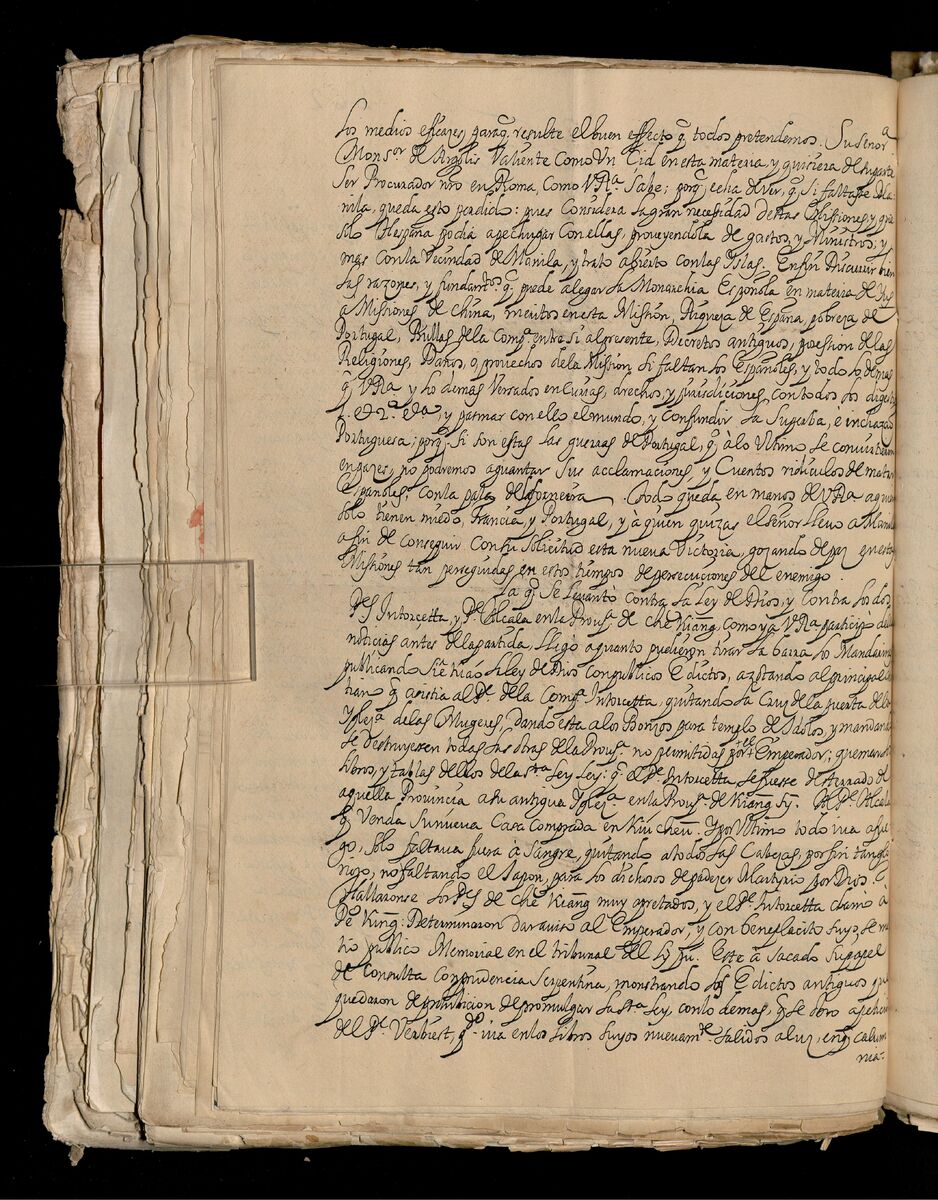 los medios efficazes, paraq̃ resulte el buen effecto q̃ todos pretendemos. Su Señorª
Monsᵒʳ de Argolis Valiente como Vn Cid en esta materia, y quisiera de su parte
Ser Procurador nr̃o en Roma, como VRª Sabe; porq̃ echa de ver, q̃ si faltasse Ma
nila, queda esto perdido: pues Considera la gran necessidad destas Missiones, y que
solo Hespana podrá apechugar con ellas, proveyendola de gastos, y Ministros, y
mas con la Vecindad de Manila, y trato abierto con las Islas. En fin Discurrir bien
las razones, y fundamᵗᵒˢ q̃ puede alegar la Monarchia Española en materia de
a Missiones de China, meritos en esta Mission, Riqueza de España, pobreza de
Portugal, Bullas de la Compª entre si al presente, Decretos antiguos, poession de las
Religiones, Daños, o, provechos de la Mission, si faltan los Españoles, y todo lo demas
q̃ VRª y los demas Versados en Curias, drechos, y jurisdiciones, con todos los digestos
y pasmar con ello el mundo, y confundir la Sugerba, è inchazon
Portuguesa; porq̃ si son estas las guerras de Portugal, q̃ à lo Vltimo se convirtieron
en pazes, no podremos aguantar sus acclamaciones, y Cuentos ridiculos de matar
Españoles con la pala del forneira. Todo queda en manos de VRª a quien
solo tienen miedo, Francia, y Portugal, y à quien quizas el Señor llevo a Manila
a fin de conseguir con su Solicitud esta nueva Victoria, gozando de paz en estas
Missiones tan perseguidas en estos tiempos de persecuciones del enemigo.
La q̃ se levantò contra la Ley de Dios, y contra los dos
Pᵉˢ Intorcetta, y Pᵉ Alcala en la Provª de Chê Kiang, como ya VRª participò de las
noticias antes de la partida, llegò a quanto pudieron tirar la barra los Mandarines
publicando Siê Kiáo la Ley de Dios con publicos Edictos, azotando al principal Cris
tian q̃ asistia al Pᵉ de la Compª Intorcetta, quitando la Cruz de la puerta de la
Iglesª de las Mugeres, dando esta a los Bonzos para templo de Idolos, y mandando
se destruyessen todas las otras de la Provª no permitidas por el Emperador; quemaron
libros, y tablas de los de la Sᵗª Ley: q̃ el Pᵉ Intorcetta se fuesse desterrado de
aquella Provincia a su antigua Iglesª en la Provª de Kiang Sy. Al Pᵉ Alcala
q̃ Venda su nueva Casa comprada en Kiu cheu. Y por Vltimo todo iva a fue
go, solo faltava fuera à Sangre, quitando a todos las Cabezas, por fin tan glo
rioso, no faltando el Iapon, para los dichosos de padezer Martyrio por Dios.
Hallaronse los Pᵉˢ de Chê Kiang muy apretados, y el Pᵉ Intorcetta clamò à
Pe King: Determinaron dar aviso al Emperador, y con beneplacito suyo, se me
tio publico Memorial en el tribunal del Ly pu. Este a sacado su papel
de Consulta con prudencia Serpentina, monstrando los Edictos antiguos, que
quedaron de prohibicion de promulgar la Sᵗª Ley, con lo demas, q̃ se obro a peticion
del Pᵉ Verbiest, qᵈᵒ iva en los libros suyos nuevamᵗᵉ salidos a luz, en q̃ calum
nia-